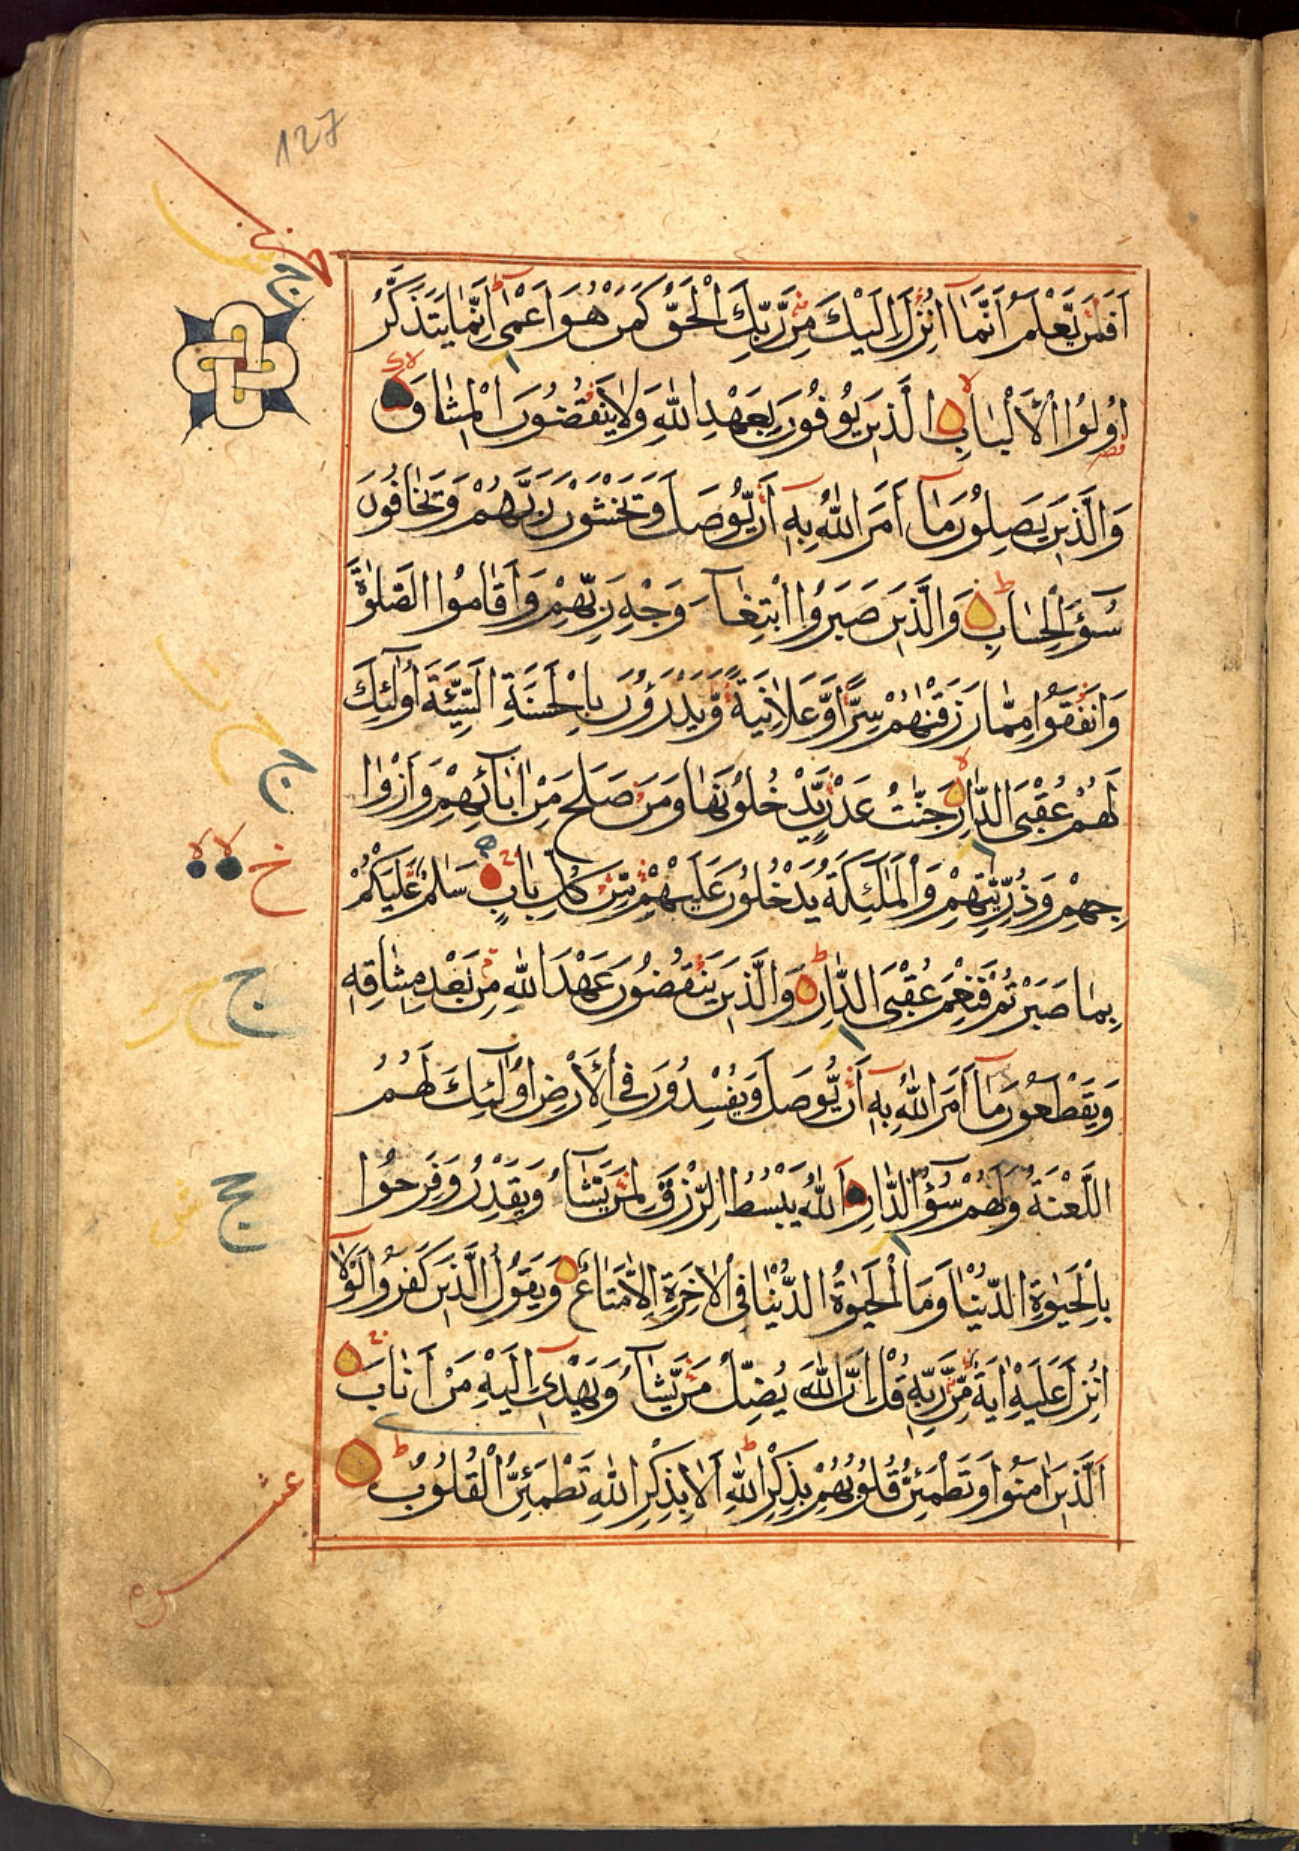 127
حزب
اَفَمَنْ يَعْلَمُ اَنَّمَا اُنْزِلَ اِلَيْكَ مِنْ رَبِّكَ الْحَقُّ كَمَنْ هُوَ اَعْمٰى اِنَّمَا يَتَذَكَّرُ
اُولُوا الْاَلْبَابِ الَّذِينَ يُوفُونَ بِعَهْدِ اللّٰهِ وَلَا يَنْقُضُونَ الْمِيثَاقَ
وَالَّذِينَ يَصِلُونَ مَا اَمَرَ اللّٰهُ بِهِ اَنْ يُّوصَلَ وَيَخْشَوْنَ رَبَّهُمْ وَيَخَافُونَ
سُوءَ الْحِسَابِ وَالَّذِينَ صَبَرُوا ابْتِغَاءَ وَجْهِ رَبِّهِمْ وَاَقَامُوا الصَّلٰوةَ
وَاَنْفَقُوا مِمَّا رَزَقْنٰهُمْ سِرًّا وَّعَلَانِيَةً وَّيَدْرَؤُنَ بِالْحَسَنَةِ السَّيِّئَةَ اُولٰئِكَ
لَهُمْ عُقْبَى الدَّارِ جَنّٰتُ عَدْنٍ يَّدْخُلُونَهَا وَمَنْ صَلَحَ مِنْ اٰبَائِهِمْ وَاَزْوَا
جِهِمْ وَذُرِّيّٰتِهِمْ وَالْمَلٰئِكَةُ يَدْخُلُونَ عَلَيْهِمْ مِّنْ كُلِّ بَابٍ سَلَامٌ عَلَيْكُمْ
بِمَا صَبَرْتُمْ فَنِعْمَ عُقْبَى الدَّارِ وَالَّذِينَ يَنْقُضُونَ عَهْدَ اللّٰهِ مِنْ بَعْدِ مِيثَاقِهِ
وَيَقْطَعُونَ مَا اَمَرَ اللّٰهُ بِهِ اَنْ يُّوصَلَ وَيُفْسِدُونَ فِي الْاَرْضِ اُولٰئِكَ لَهُمُ
اللَّعْنَةُ وَلَهُمْ سُوءُ الدَّارِ اَللّٰهُ يَبْسُطُ الرِّزْقَ لِمَنْ يَّشَاءُ وَيَقْدِرُ وَفَرِحُوا
بِالْحَيٰوةِ الدُّنْيَا وَمَا الْحَيٰوةُ الدُّنْيَا فِي الْاٰخِرَةِ اِلَّا مَتَاعٌ وَيَقُولُ الَّذِينَ كَفَرُوا لَوْلَا
اُنْزِلَ عَلَيْهِ اٰيَةٌ مِّنْ رَبِّهِ قُلْ اِنَّ اللّٰهَ يُضِلُّ مَنْ يَّشَاءُ وَيَهْدِي اِلَيْهِ مَنْ اَنَابَ
اَلَّذِينَ اٰمَنُوا وَتَطْمَئِنُّ قُلُوبُهُمْ بِذِكْرِ اللّٰهِ اَلَا بِذِكْرِ اللّٰهِ تَطْمَئِنُّ الْقُلُوبُ
عشر